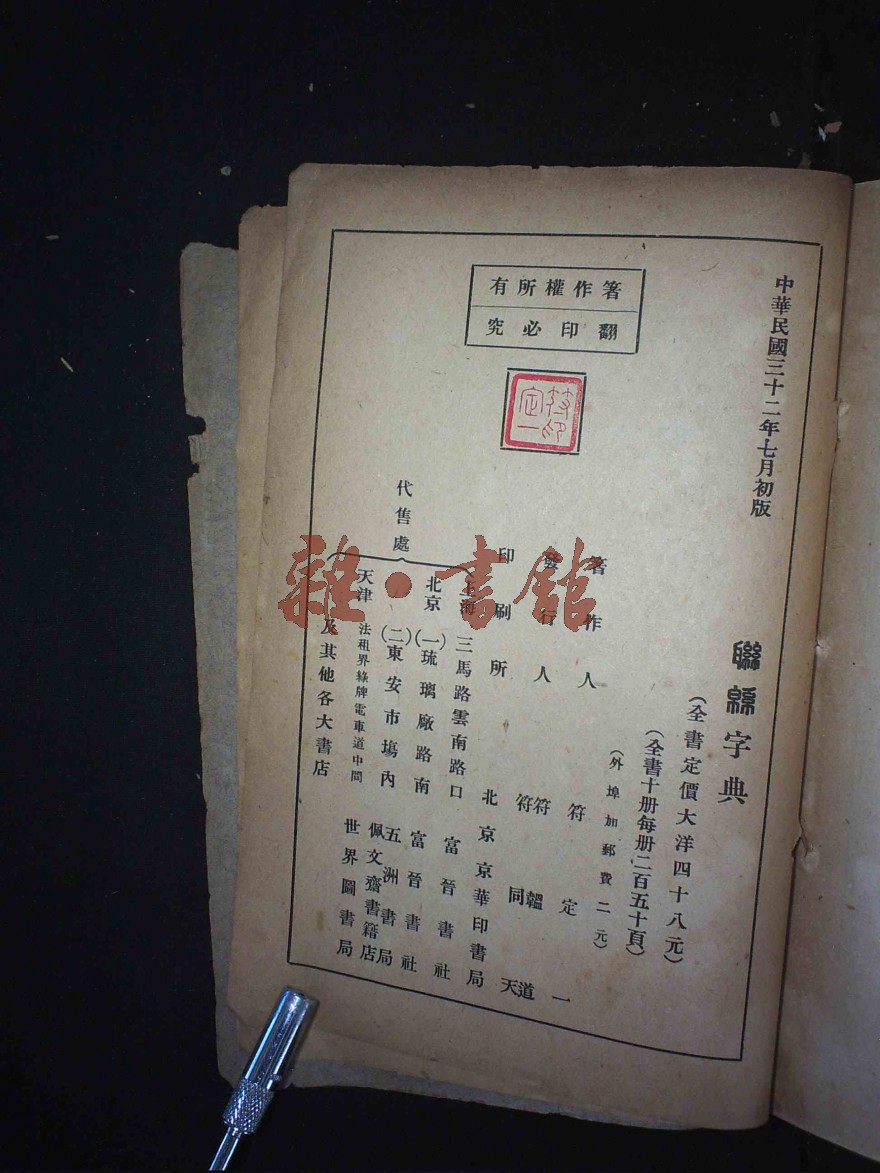 中華民國三十二年七月初版
聯緜字典
(全書定價大洋四十八元)
(全書十册每册二百五十頁)
(外埠加郵費二元)
箸作權所有
翻印必究
符定一印
箸作人 符定一
發行人 符韞道
符同天
印刷所 北京京華印書局
代售處
上海 三馬路雲南路口 富晉書社
北京 (一)琉璃廠路南 富晉書社
(二)東安市塲內 五洲書局
佩文齋書籍店
天津 法租界綠牌電車道中間 世界圖書局
及其他各大書店
雜·書館